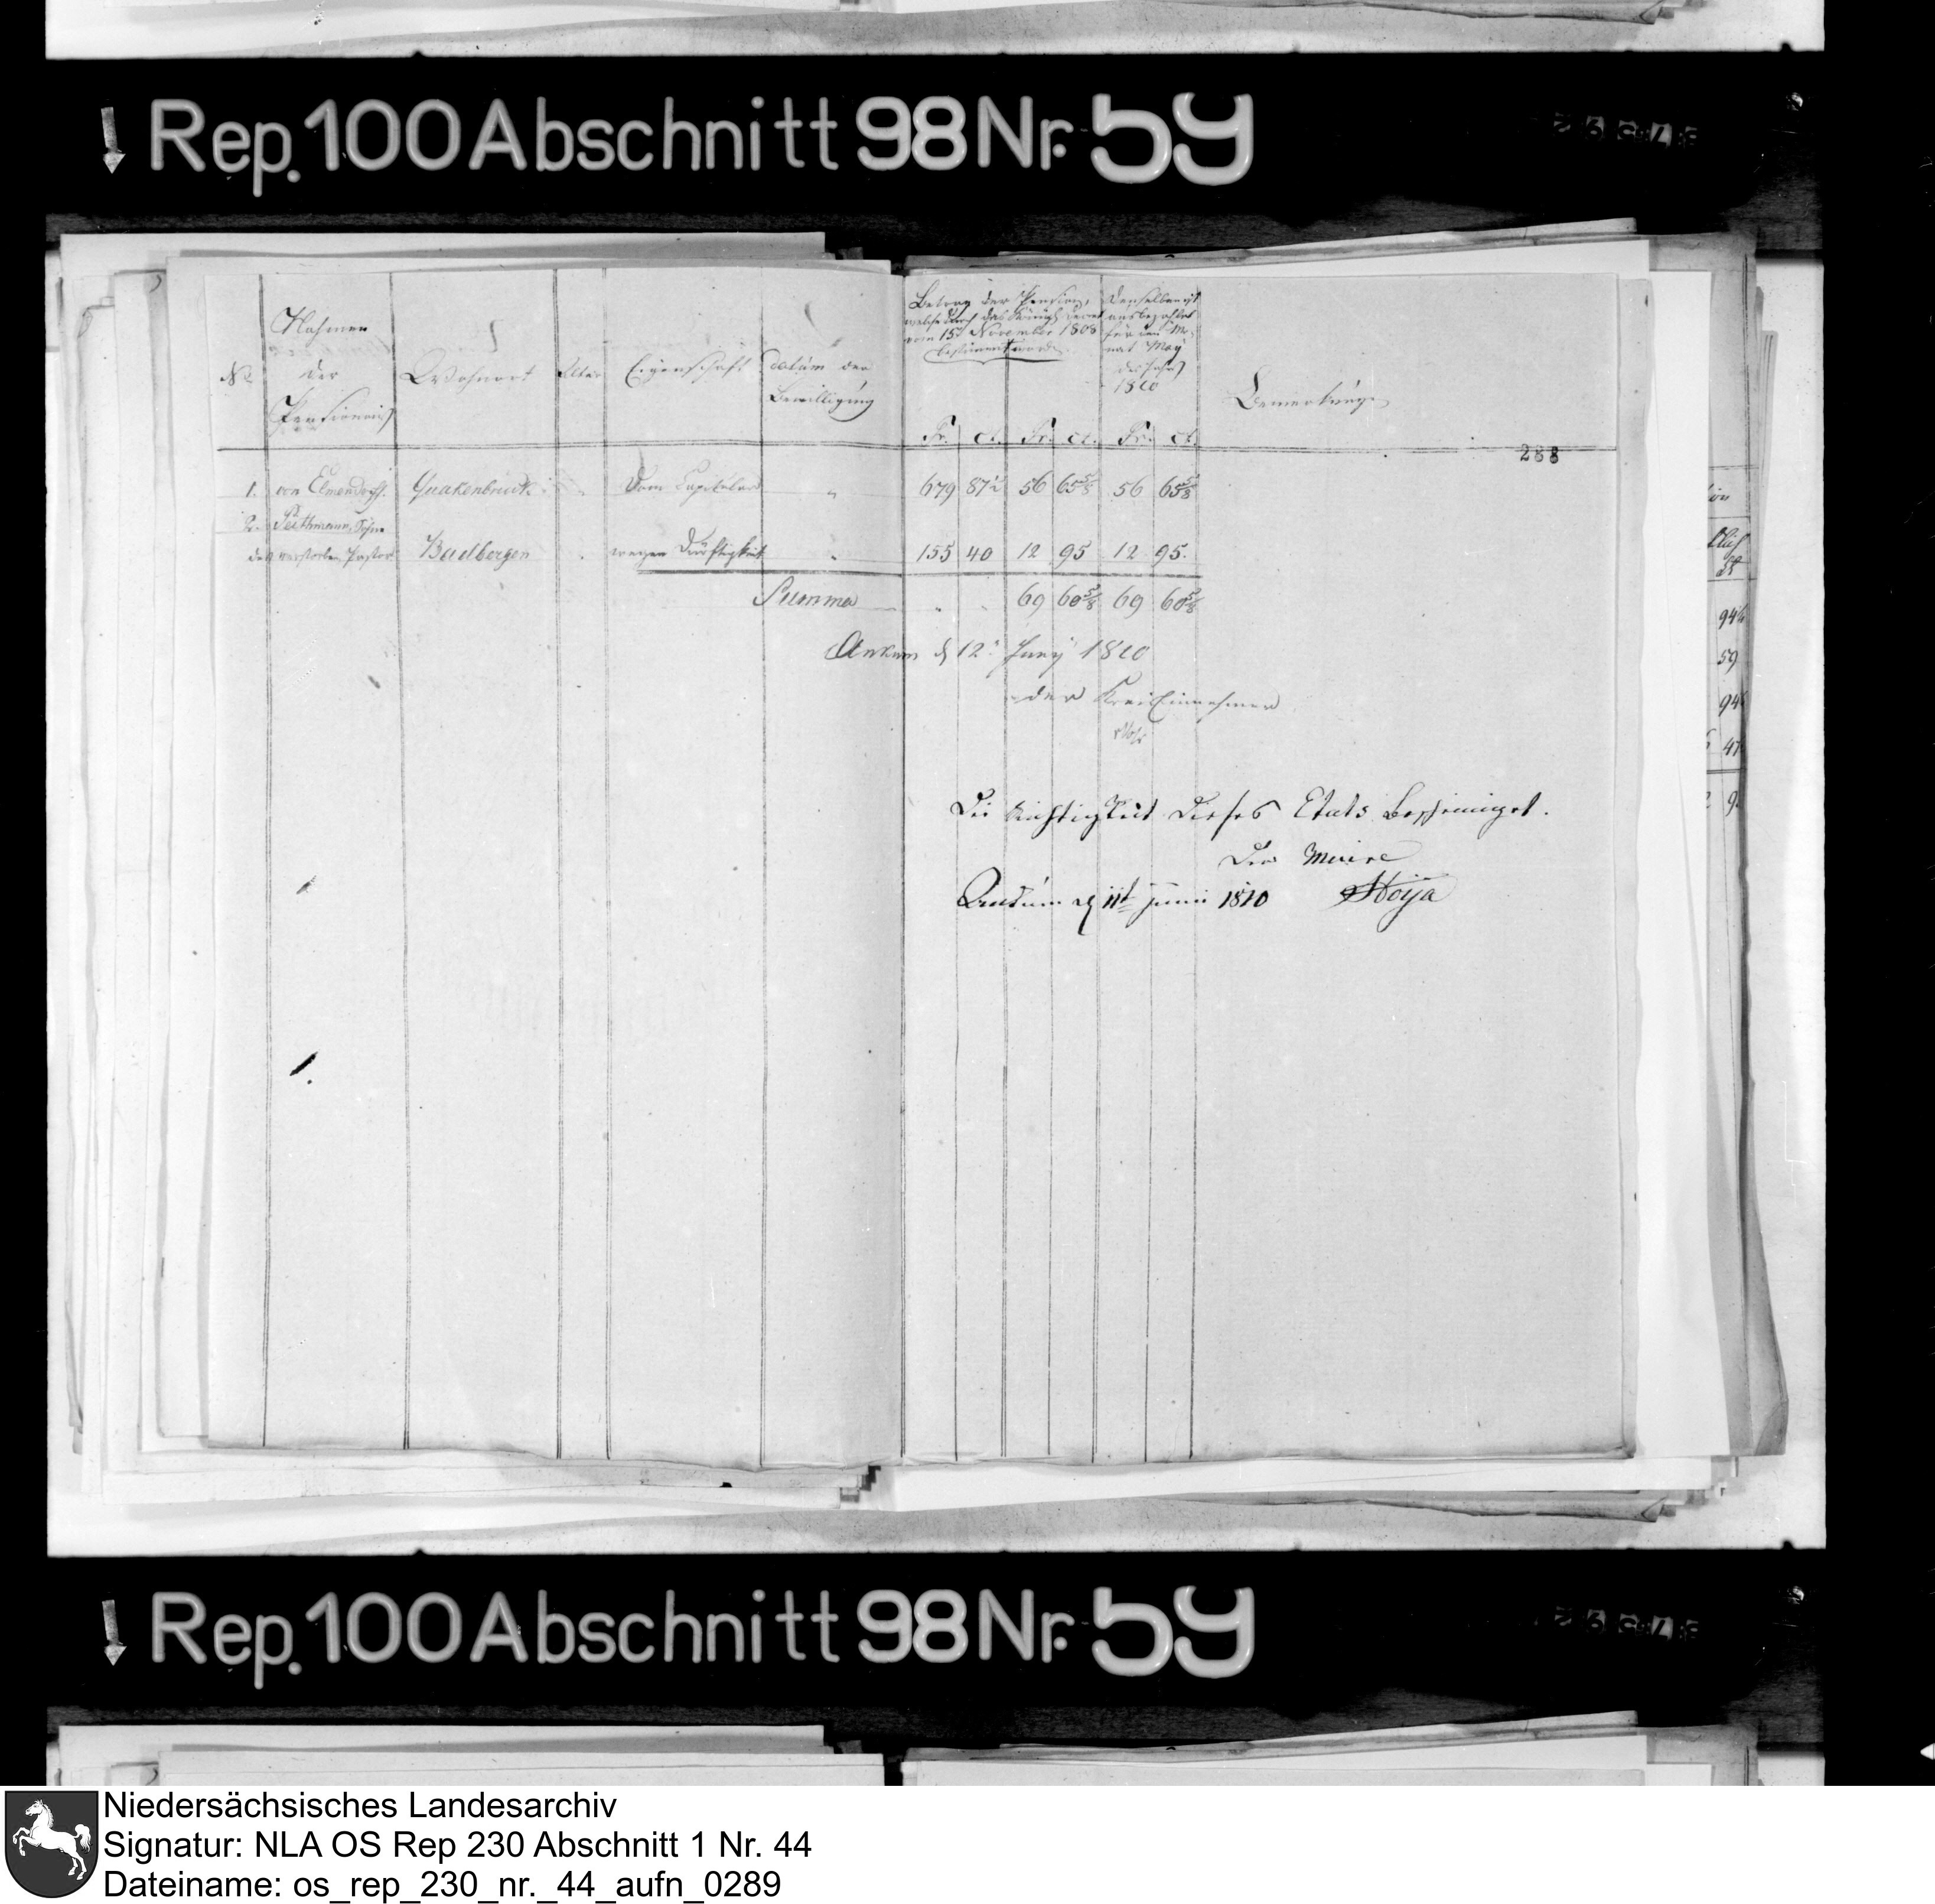 Rep. 100 Abschnitt 98 Nr. 59
Nahmen
der
Pensionairs
No.
Wohnort
Alter
Eigenschaft
Datum der
Bewilligung
Betrag der Pension,
welche durch das Königl. Decret
vom 15t November 1808
bestimmt worden
Denselben ist
ausbezahlet
für den Mo-
nat May
des Jahrs
1810
Bemerkungen
Fr. ct. Fr. ct. Fr. ct.
288
1. von Elmendorff. Quakenbrück Dom Capitular " 679 87½ 56 65⅝ 56 65⅝
2. Söhne
des verstorben Pastor Badbergen wegen Dürftigkeit " 155 40 12 95 12 95.
Summa " " 69 60⅝ 69 60⅝
Ankum d 12t Juny 1810
der Kreis Einnehmer
Die Richtigkeit dieses Etats bescheiniget.
Der Maire
d 11t Junii 1810 Hoija
94
59
94
47
Rep. 100 Abschnitt 98 Nr. 59
Niedersächsisches Landesarchiv
Signatur: NLA OS Rep 230 Abschnitt 1 Nr. 44
Dateiname: os_rep_230_nr._44_aufn_0289